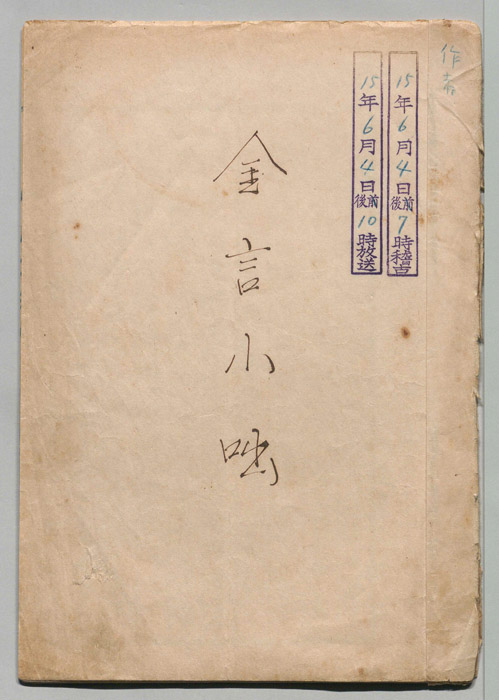 作者
15年6月4日前後7時稽古
15年6月4日前後10時放送
金言小咄